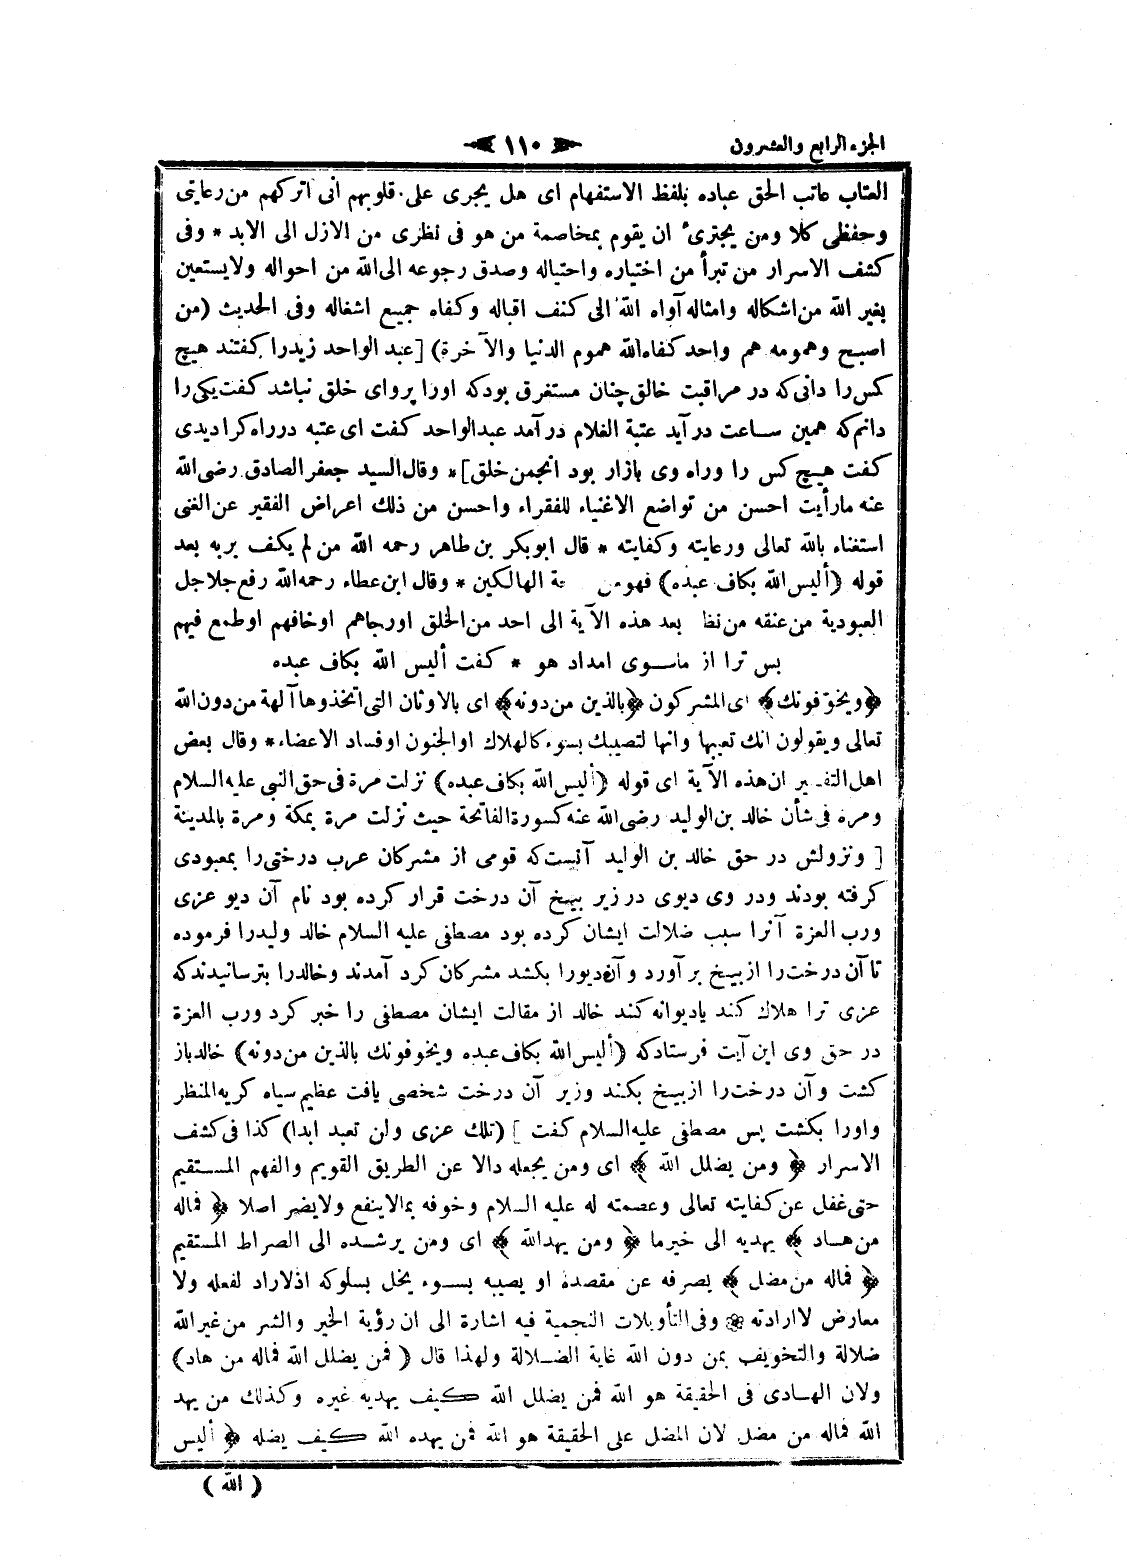 الجزء الرابع والعشرون ١١٠
العتاب عاتب الحق عباده بلفظ الاستفهام اى هل يجرى على قلوبهم انى اتركهم من رعايتى
وحفظى كلا ومن يجترئ ان يقوم بمخاصمة من هو فى نظرى من الازل الى الابد * وفى
كشف الاسرار من تبرأ من اختياره واحتياله وصدق رجوعه الى الله من احواله ولا يستعين
بغير الله من اشكاله وامثاله آواه الله الى كنف اقباله وكفاه جميع اشغاله وفى الحديث (من
اصبح وهمومه هم واحد كفاه الله هموم الدنيا والآخرة) [عبد الواحد زيدرا كفتند هيچ
كس را دانى كه در مراقبت خالق چنان مستغرق بودكه اورا پرواى خلق نباشد كفت يكى را
دانم كه همين ساعت در آيد عتبة الغلام در آمد عبدالواحد كفت اى عتبه در راه كرا ديدى
كفت هيچ كس را وراه وى بازار بود انجمن خلق] * وقال السيد جعفر الصادق رضى الله
عنه مارأيت احسن من تواضع الاغنياء للفقراء واحسن من ذلك اعراض الفقير عن الغنى
استغناء بالله تعالى ورعايته وكفايته * قال ابوبكر بن طاهر رحمه الله من لم يكف بربه بعد
قوله (أليس الله بكاف عبده) فهو من ة الهالكين * وقال ابن عطاء رحمه الله رفع جلاجل
العبودية من عنقه من نظ بعد هذه الآية الى احد من الخلق اورجاهم اوخافهم اوطمع فيهم
بس ترا از ماسوى امداد هو * كفت أليس الله بكاف عبده
﴿ويخوفونك﴾ اى المشركون ﴿بالذين من دونه﴾ اى بالاوثان التى اتخذوها آلهة من دون الله
تعالى ويقولون انك تعيبها وانها لتصيبك بسوء كالهلاك او الجنون اوفساد الاعضاء * وقال بعض
اهل التفسير ان هذه الآية اى قوله (أليس الله بكاف عبده) نزلت مرة فى حق النبى عليه السلام
ومرة فى شأن خالد بن الوليد رضى الله عنه كسورة الفاتحة حيث نزلت مرة بمكة ومرة بالمدينة
[ ونزولش در حق خالد بن الوليد آنست كه قومى از مشركان عرب درختى را بمعبودى
كرفته بودند ودر وى ديوى در زير بيخ آن درخت قرار كرده بود نام آن ديو عزى
ورب العزة آنرا سبب ضلالت ايشان كرده بود مصطفى عليه السلام خالد وليدرا فرموده
تا آن درخت را از بيخ بر آورد و آن ديورا بكشد مشركان كرد آمدند وخالدرا بترسانيدند كه
عزى ترا هلاك كند يا ديوانه كند خالد از مقالت ايشان مصطفى را خبر كرد ورب العزة
در حق وى اين آيت فرستادكه (أليس الله بكاف عبده ويخوفونك بالذين من دونه) خالد باز
كشت و آن درخت را از بيخ بكند وزير آن درخت شخصى يافت عظيم سياه كريه المنظر
واورا بكشت پس مصطفى عليه السلام كفت ] (تلك عزى ولن تعبد ابدا) كذا فى كشف
الاسرار ﴿ ومن يضلل الله ﴾ اى ومن يجعله دالا عن الطريق القويم والفهم المستقيم
حتى غفل عن كفايته تعالى وعصمته له عليه السلام وخوفه بما لاينفع ولا يضر اصلا ﴿ فماله
من هاد ﴾ يهديه الى خيرما ﴿ ومن يهدالله ﴾ اى ومن يرشده الى الصراط المستقيم
﴿ فماله من مضل ﴾ يصرفه عن مقصده او يصيبه بسوء يخل بسلوكه اذلاراد لفعله ولا
معارض لاارادته ۞ وفى التأويلات النجمية فيه اشارة الى ان رؤية الخير والشر من غير الله
ضلالة والتخويف بمن دون الله غاية الضلالة ولهذا قال ( فمن يضلل الله فماله من هاد)
ولان الهادى فى الحقيقة هو الله فمن يضلل الله كيف يهديه غيره وكذلك من يهد
الله فماله من مضل لان المضل على الحقيقة هو الله فمن يهده الله كيف يضله ﴿ أليس
( الله )